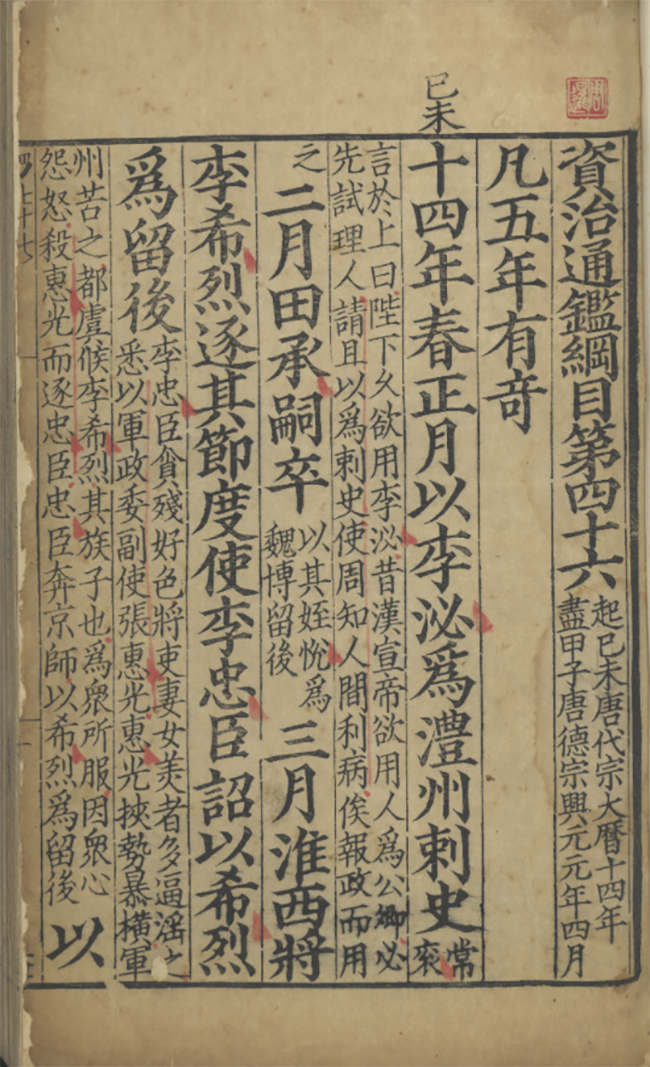 資治通鑑綱目第四十六
起巳未唐代宗大暦十四年
盡甲子唐德宗興元元年四月
凡五年有奇
巳未
十四年春正月以李泌爲澧州刺史
常
袞
言於上曰陛下久欲用李泌昔漢宣帝欲用人爲公卿必
先試理人請且以爲刺史使周知人間利病俟報政而用
之
二月田承嗣卒
以其姪悅爲
魏博留後
三月淮西將
李希烈逐其節度使李忠臣詔以希烈
爲留後
李忠臣貪殘好色將吏妻女美者多逼淫之
悉以軍政委副使張惠光惠光挾勢暴橫軍
州苦之都虞候李希烈其族子也爲衆所服因衆心
怨怒殺惠光而逐忠臣忠臣奔京師以希烈爲留後
以